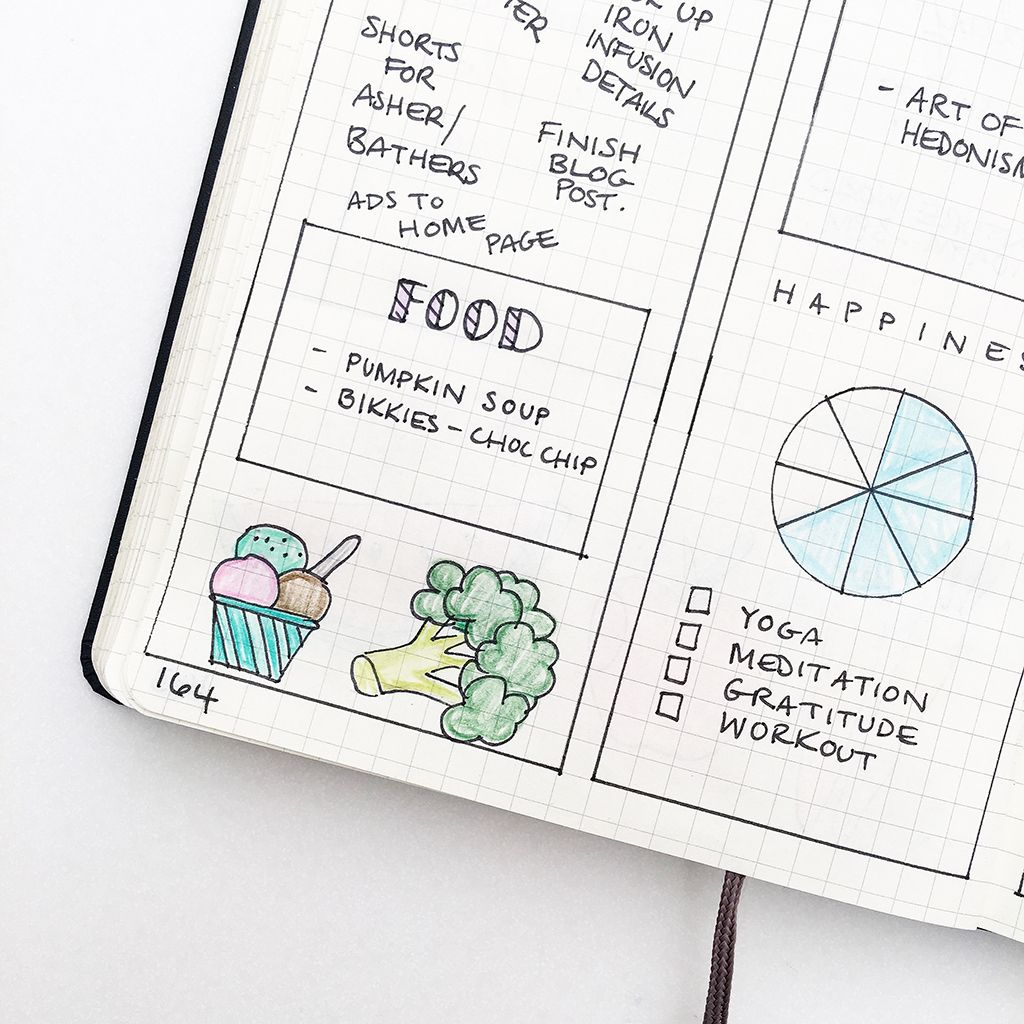 SHORTS
FOR
ASHER/
BATHERS
ADS TO
HOME PAGE
UP
IRON
INFUSION
DETAILS
FINISH
BLOG
POST.
FOOD
- PUMPKIN SOUP
- BIKKIES - CHOC CHIP
164
- ART OF
HEDONISM
HAPPINES
YOGA
MEDITATION
GRATITUDE
WORKOUT